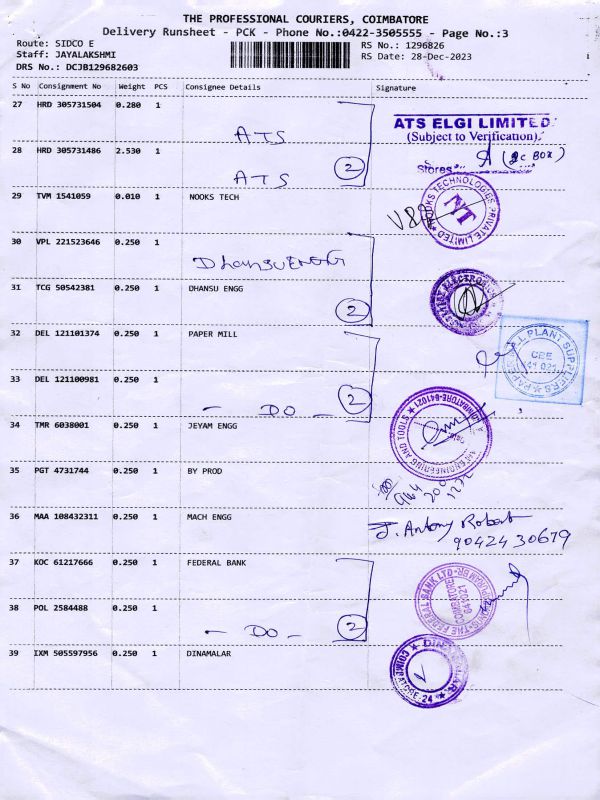 THE PROFESSIONAL COURIERS, COIMBATORE
Delivery Runsheet - PCK - Phone No.:0422-3505555 - Page No.:3
Route: SIDCO E RS No.: 1296826
Staff: JAYALAKSHMI RS Date: 28-Dec-2023
DRS No.: DCJB129682603
S No Consignment No Weight PCS Consignee Details Signature
27 HRD 305731504 0.280 1
ATS
ATS ELGI LIMITED.
(Subject to Verification).
28 HRD 305731486 2.530 1
ATS 2
Stores
29 TVM 1541059 0.010 1 NOOKS TECH
NOOKS TECHNOLOGIES PRIVATE LIMITED ★
NT
30 VPL 221523646 0.250 1
Dhansu ENGG
31 TCG 50542381 0.250 1 DHANSU ENGG
2
32 DEL 121101374 0.250 1 PAPER MILL
PLANT SUPPLIERS ★
CBE
33 DEL 121100981 0.250 1
- DO - 2
34 TMR 6038001 0.250 1 JEYAM ENGG
ENGINEERING AND TOOLS ★
35 PGT 4731744 0.250 1 BY PROD
944
200
36 MAA 108432311 0.250 1 MACH ENGG
J. Antony Robert
90424 30679
37 KOC 61217666 0.250 1 FEDERAL BANK
THE FEDERAL BANK LTD
COIMBATORE
641021
38 POL 2584488 0.250 1
- DO - 2
39 IXM 505597956 0.250 1 DINAMALAR
DINAMALAR ★ COIMBATORE-24 ★